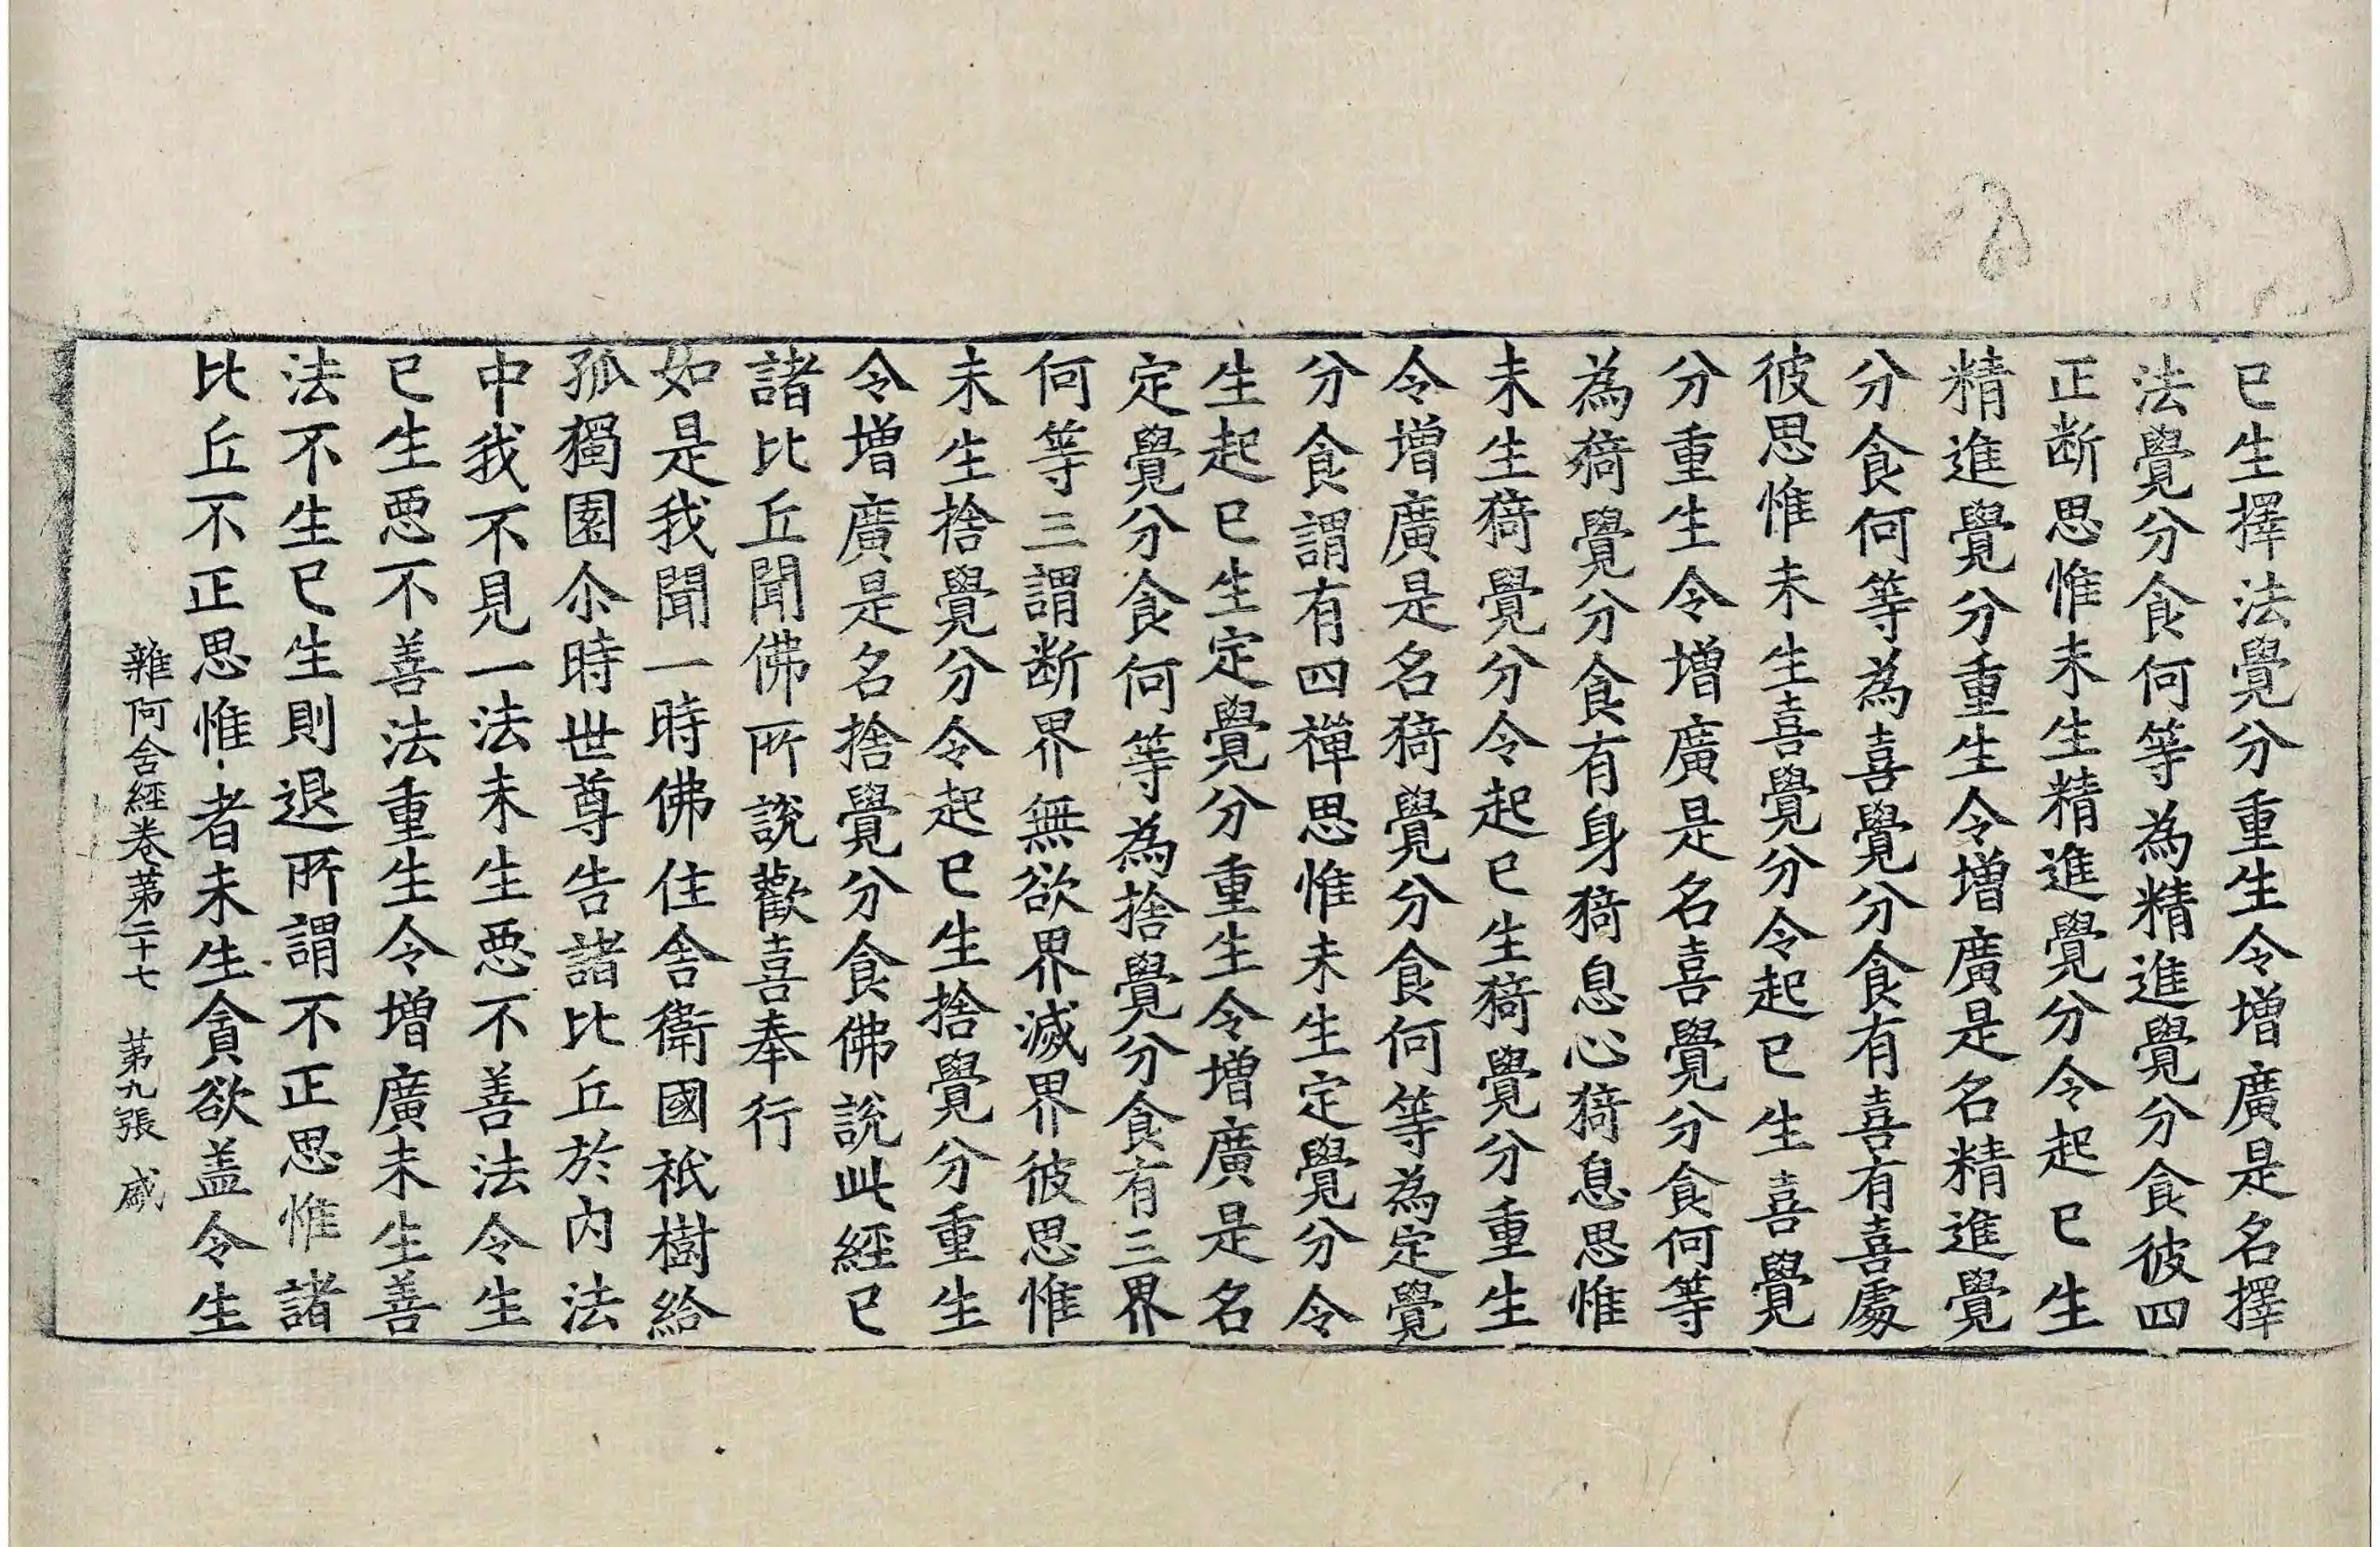 已生擇法覺分重生令增廣是名擇
法覺分食何等為精進覺分食彼四
正断思惟未生精進覺分令起已生
精進覺分重生令增廣是名精進覺
分食何等為喜覺分食有喜有喜處
彼思惟未生喜覺分令起已生喜覺
分重生令增廣是名喜覺分食何等
為猗覺分食有身猗息心猗息思惟
未生猗覺分令起已生猗覺分重生
令增廣是名猗覺分食何等為定覺
分食謂有四禪思惟未生定覺分令
生起已生定覺分重生令增廣是名
定覺分食何等為捨覺分食有三界
何等三謂断界無欲界滅界彼思惟
未生捨覺分令起已生捨覺分重生
令增廣是名捨覺分食佛說此經已
諸比丘聞佛所說歡喜奉行
如是我聞一時佛住舍衛國祇樹給
孤獨園尒時世尊告諸比丘於內法
中我不見一法未生惡不善法令生
已生惡不善法重生令增廣未生善
法不生已生則退所謂不正思惟諸
比丘不正思惟者未生貪欲盖令生
雜阿含經卷第二十七 第九張 戚